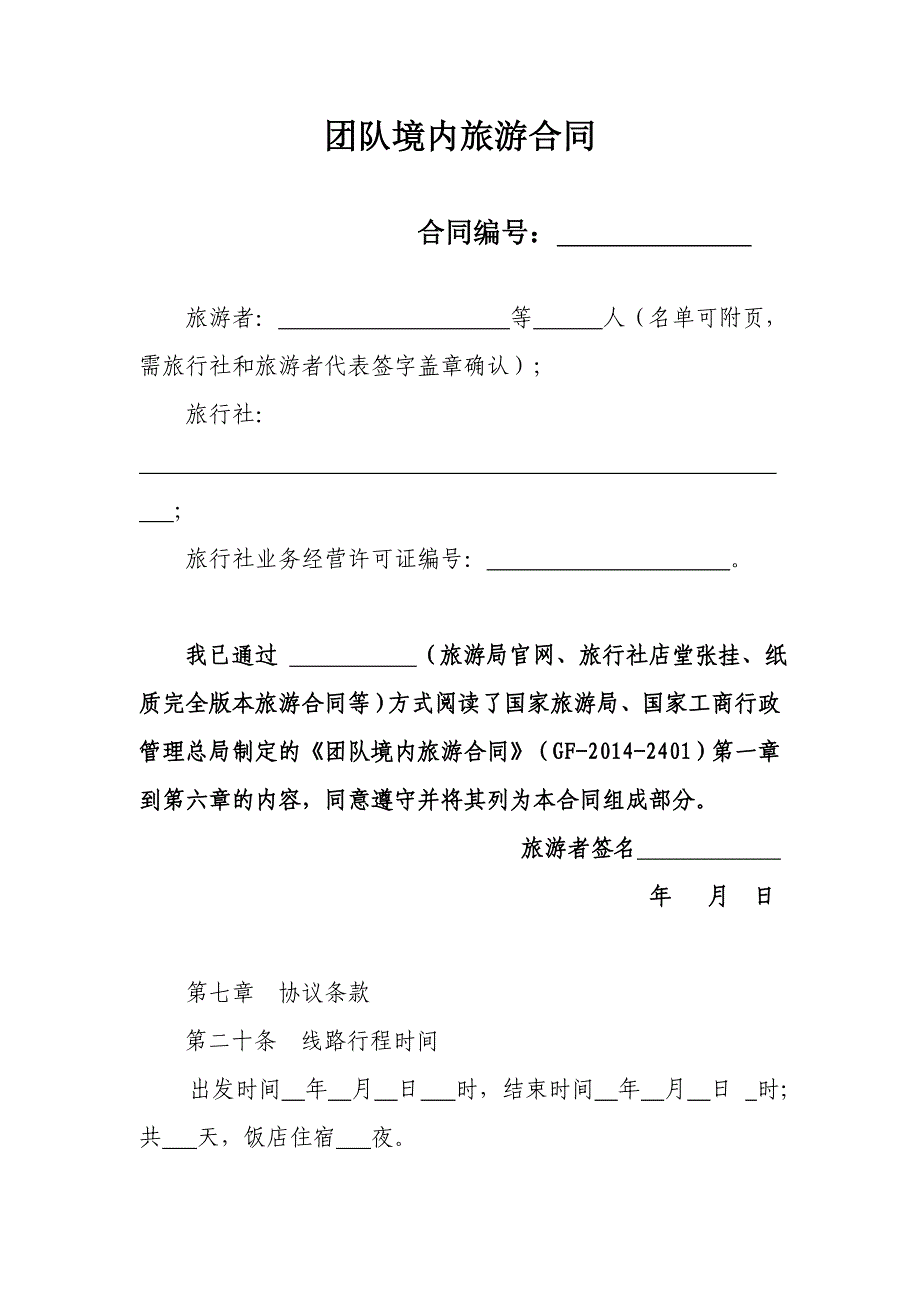 团队境内旅游合同
合同编号：______________
旅游者：____________________等______人（名单可附页，
需旅行社和旅游者代表签字盖章确认）；
旅行社：
_______________________________________________________
___；
旅行社业务经营许可证编号：_____________________。
我已通过 ___________（旅游局官网、旅行社店堂张挂、纸
质完全版本旅游合同等）方式阅读了国家旅游局、国家工商行政
管理总局制定的《团队境内旅游合同》（GF-2014-2401）第一章
到第六章的内容，同意遵守并将其列为本合同组成部分。
旅游者签名____________
年 月 日
第七章 协议条款
第二十条 线路行程时间
出发时间__年__月__日___时，结束时间__年__月__日 _时；
共___天，饭店住宿___夜。